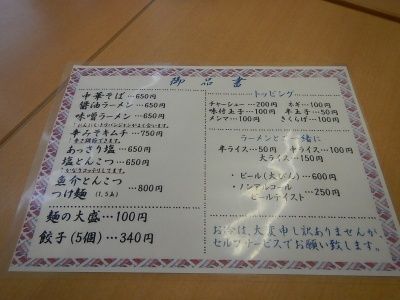 御品書
中華そば…650円
醤油ラーメン…650円
味噌ラーメン…650円
辛みそキムチ…750円
あっさり塩…650円
塩とんこつ…650円
魚介とんこつ
つけ麺(1.5玉)…800円
麺の大盛…100円
餃子(5個)…340円
トッピング
チャーシュー…200円
ネギ…100円
味付玉子…100円
半玉子…50円
メンマ…100円
きくらげ…100円
ラーメンとご一緒に
半ライス…50円
中ライス…100円
大ライス…150円
・ビール(大びん)…600円
・ノンアルコール
ビールテイスト…250円
お冷は、大変申し訳ありませんが
セルフサービスでお願い致します。